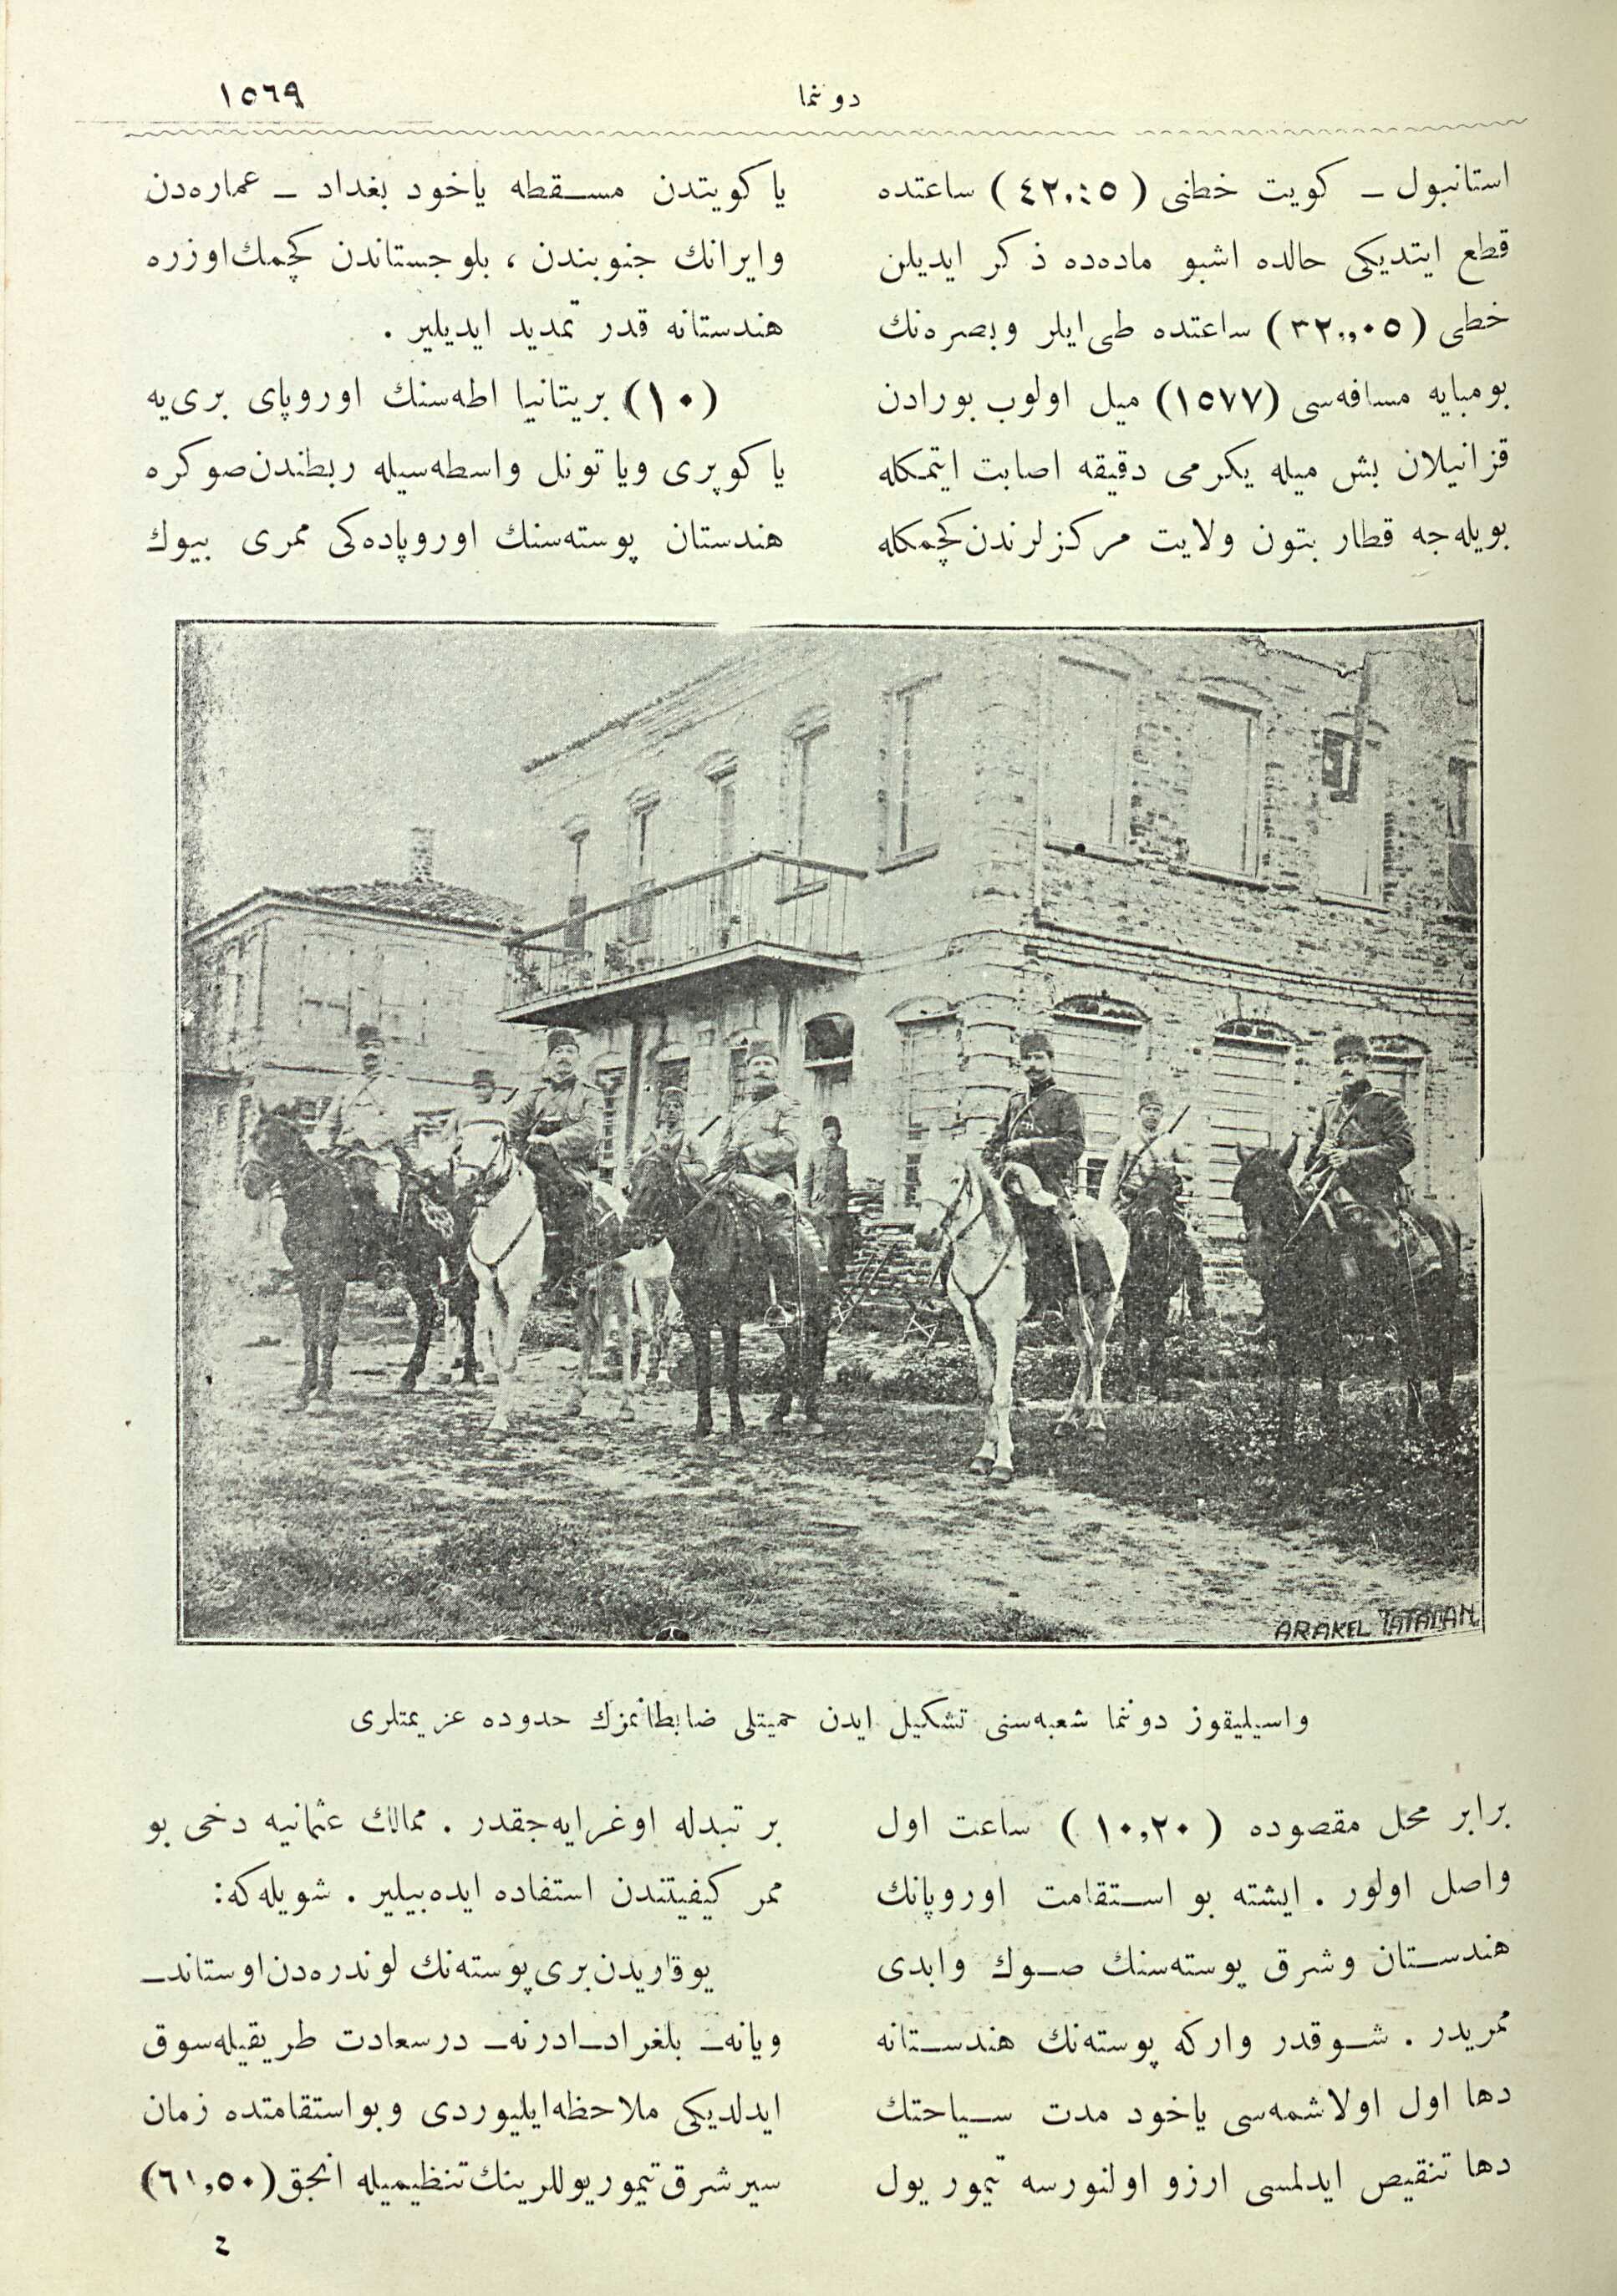 دونما
١٥٦٩
استانبول ـ كويت خطنى (٤٢،:٥) ساعتده
قطع ايتديكى حالده اشبو ماده‌ده ذكر ايديلن
خطى (٣٢،,٠٥) ساعتده طى‌ايلر وبصره‌نك
بومبايه مسافه‌سى (١٥٧٧) ميل اولوب بورادن
قزانيلان بش ميله يكرمى دقيقه اصابت ايتمكله
بويله‌جه قطار بتون ولايت مركزلرندن كچمكله
يا كويتدن مسقطه ياخود بغداد ـ عماره‌دن
وايرانك جنوبندن ، بلوجستاندن كچمك‌اوزره
هندستانه قدر تمديد ايديلير .
(١٠) بريتانيا اطه‌سنك اوروپاى برى‌يه
يا كوپرى ويا تونل واسطه‌سيله ربطندن‌صوكره
هندستان پوسته‌سنك اوروپاده‌كى ممرى بيوك
ARAKEL TATALAN
واسيليقوز دونما شعبه‌سنى تشكيل ايدن حميتلى ضابطانمزك حدوده عزيمتلرى
برابر محل مقصوده (١٠,٢٠) ساعت اول
واصل اولور . ايشته بو استقامت اوروپانك
هندستان وشرق پوسته‌سنك صوك وابدى
ممريدر . شوقدر واركه پوسته‌نك هندستانه
دها اول اولاشمه‌سى ياخود مدت سياحتك
دها تنقيص ايدلمسى ارزو اولنورسه تيمور يول
بر تبدله اوغرايه‌جقدر . ممالك عثمانيه دخى بو
ممر كيفيتندن استفاده ايده‌بيلير . شويله‌كه:
يوقاريدن‌برى پوسته‌نك لوندره‌دن‌اوستاندـ
ويانه‌ـ بلغرادـ‌ادرنه‌ـ درسعادت طريقيله‌سوق
ايدلديكى ملاحظه‌ايليوردى وبواستقامتده زمان
سيرشرق‌تيموريوللرينك‌تنظيميله انجق (٦١,٥٠)
٤